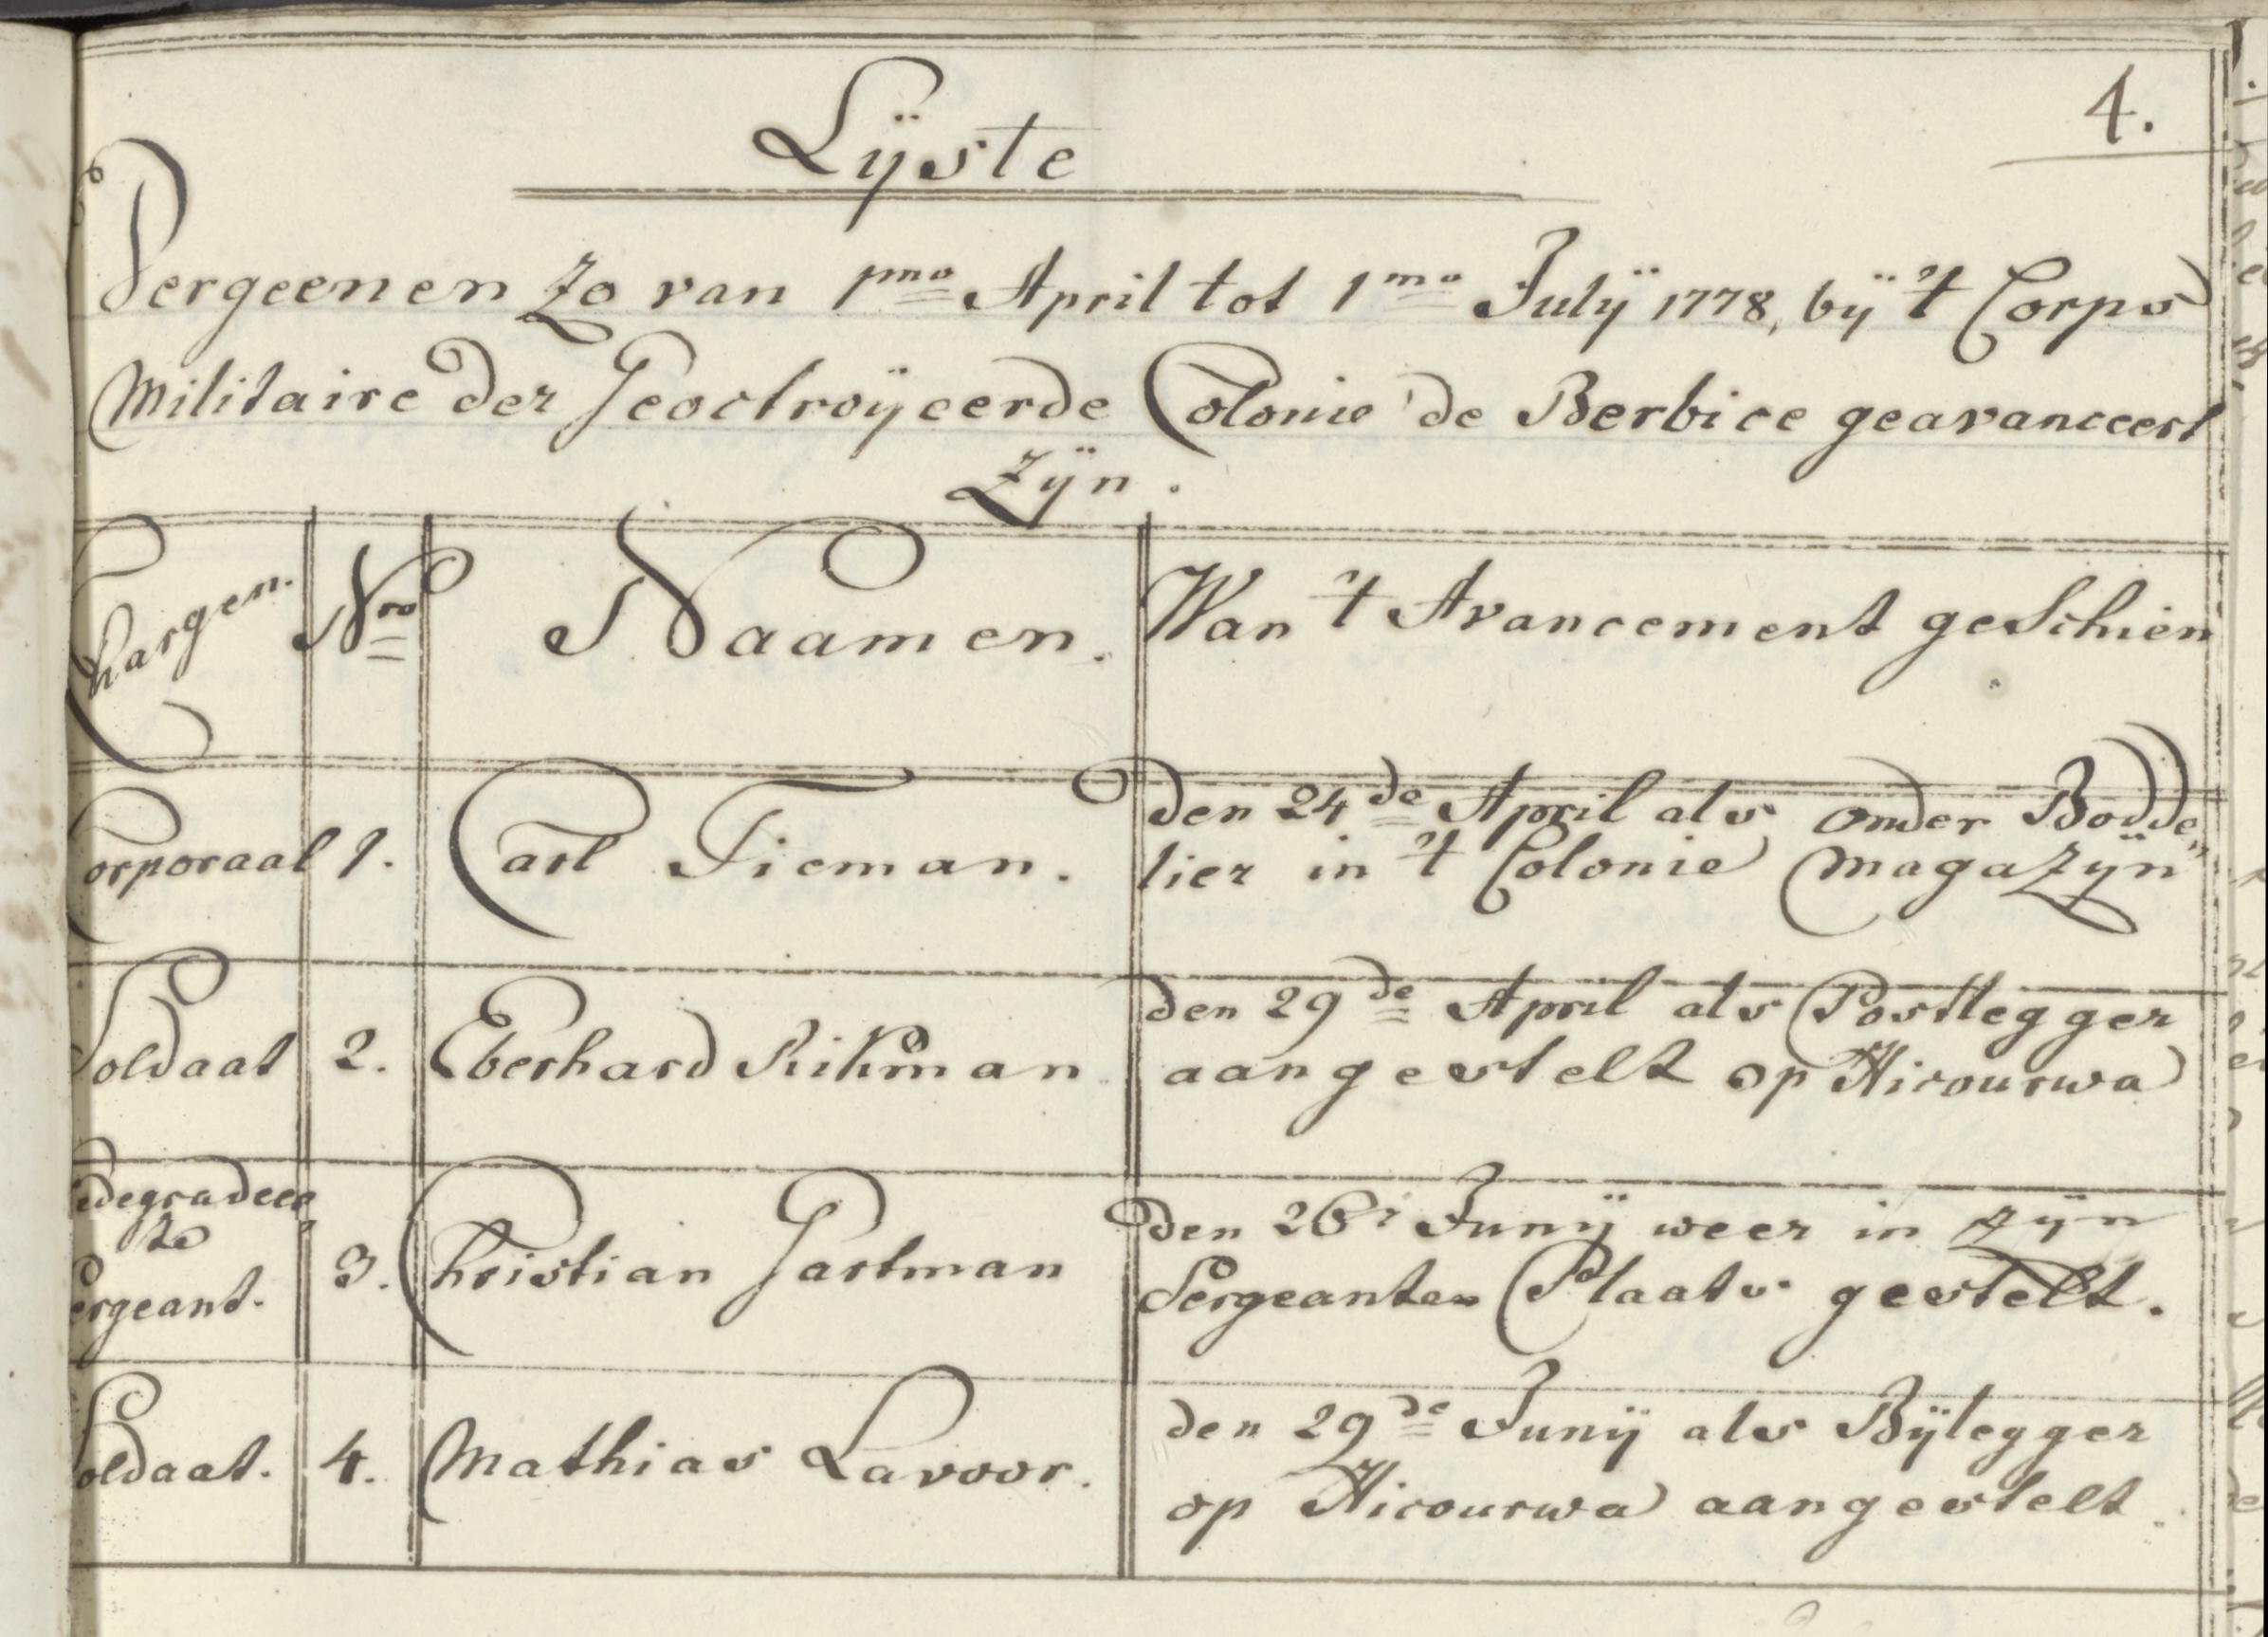 4.
Lÿste
Dergeenen zo van 1mo April tot 1mo Julÿ 1778, bÿ 't Corps
Militaire der Geoctroÿeerde Colonie de Berbice geavanceert
Zÿn.
Chargen. Nro Naamen. Wan 't Avancement geschien
Corporaal 1. Carl Tieman. den 24de April als onder Bodde„
lier in 't Colonie Magazÿn
Soldaat 2. Eberhard Rikman den 29de April als Postlegger
aangestelt op Hicourwa
Gedegradeer„
te
Sergeant. 3. Christian Gartman den 26r Junÿ weer in zÿn
Sergeanten Plaats gestelt.
Soldaat. 4. Mathias Lavoor. den 29de Junÿ als Bÿlegger
op Hicourwa aangestelt.